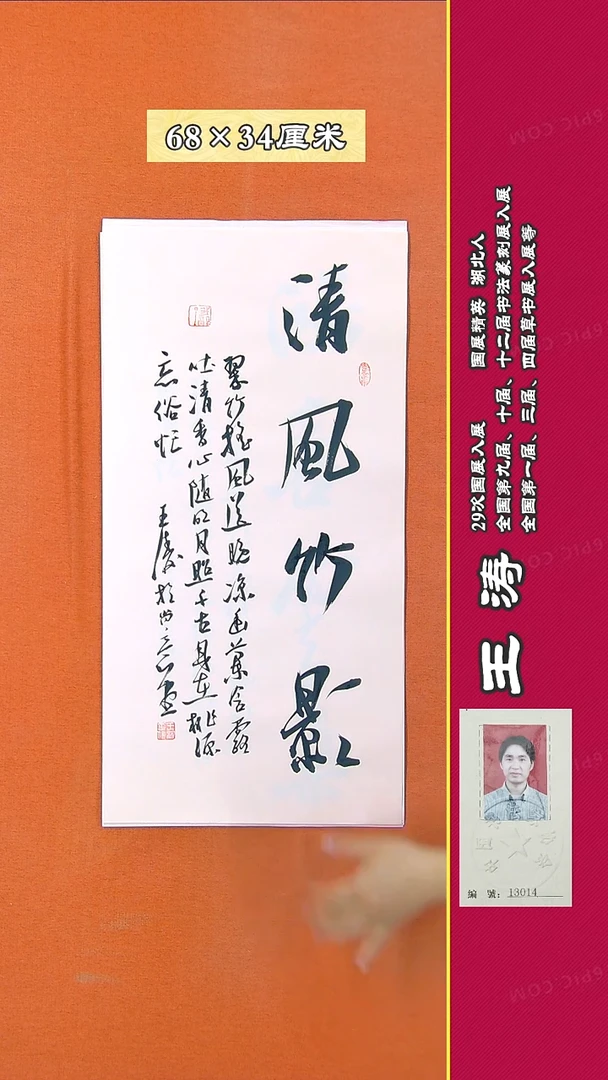 68×34厘米
清風竹影
翠竹搖風送晚涼幽蘭含露
吐清香心隨明月照千古身在桃源
忘俗忙
王涛
29次国展入展 国展精英 湖北人
全国第九届、十届、十二届书法篆刻展入展
全国第一届、三届、四届草书展入展等
王涛
编 號: 13014